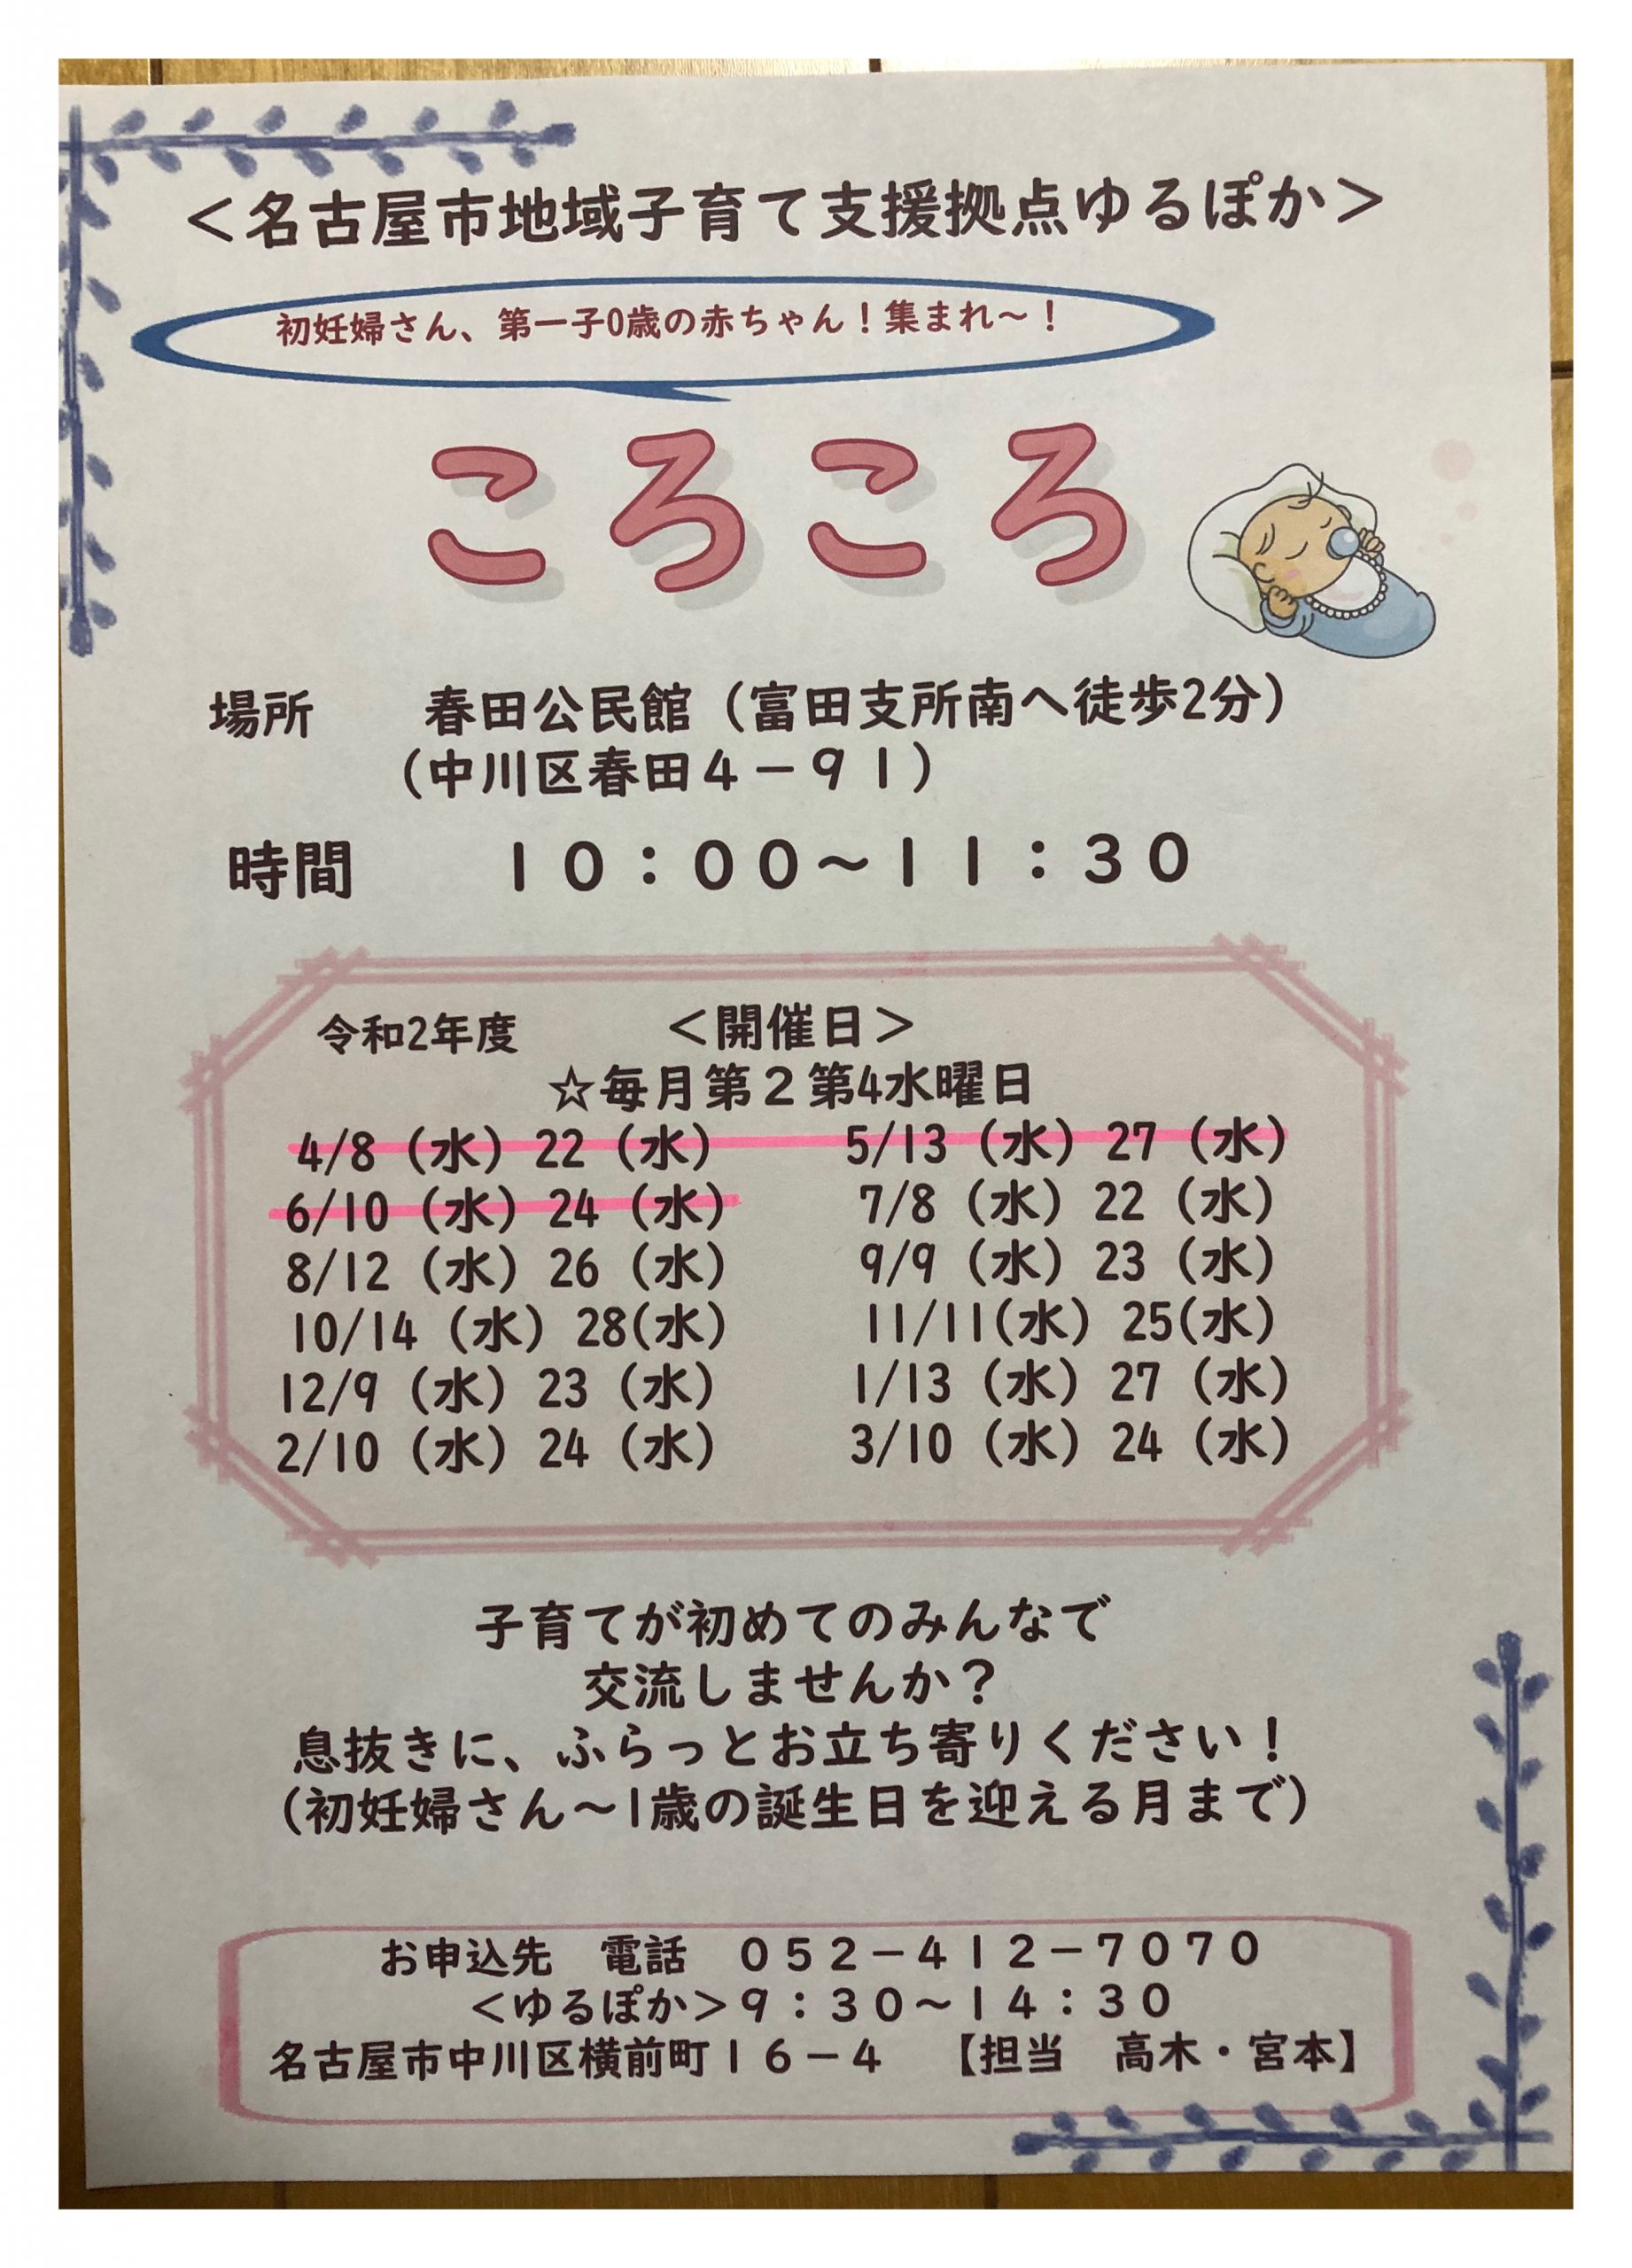 ＜名古屋市地域子育て支援拠点ゆるぽか＞
初妊婦さん、第一子0歳の赤ちゃん！集まれ～！
ころころ
場所　春田公民館（富田支所南へ徒歩2分）
（中川区春田４－９１）
時間　１０：００～１１：３０
令和2年度　＜開催日＞
☆毎月第２第4水曜日
4/8（水）22（水）　5/13（水）27（水）
6/10（水）24（水）　7/8（水）22（水）
8/12（水）26（水）　9/9（水）23（水）
10/14（水）28(水）　11/11(水）25(水）
12/9（水）23（水）　1/13（水）27（水）
2/10（水）24（水）　3/10（水）24（水）
子育てが初めてのみんなで
交流しませんか？
息抜きに、ふらっとお立ち寄りください！
（初妊婦さん～1歳の誕生日を迎える月まで）
お申込先　電話　０５２－４１２－７０７０
＜ゆるぽか＞９：３０～１４：３０
名古屋市中川区横前町１６－４　【担当　高木・宮本】